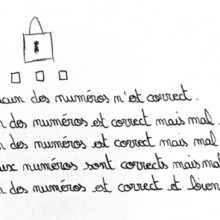 cun des numéros n'est correct.
n des numéros est correct mais mal
n des numéros est correct mais mal
ux numéros sont corrects mais mal
n des numéros est correct et bien